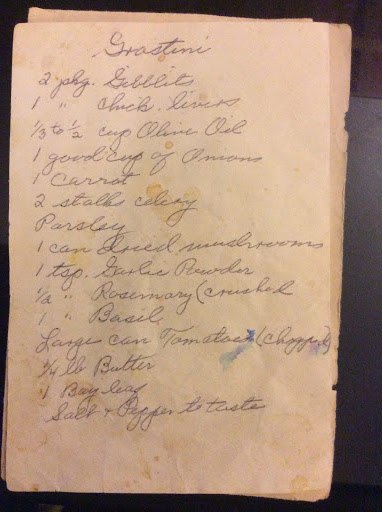 Grostini
2 pkg. Gibblits
1 " chick. livers
1/3 to 1/2 cup Olive Oil
1 good cup of Onions
1 Carrot
2 stalks celery
Parsley
1 can Sliced mushrooms
1 tsp. Garlic Powder
1/2 " Rosemary (crushed
1 " Basil
Large can Tomatoes (chopped)
1/4 lb Butter
1 Bay leaf
Salt + Pepper to taste